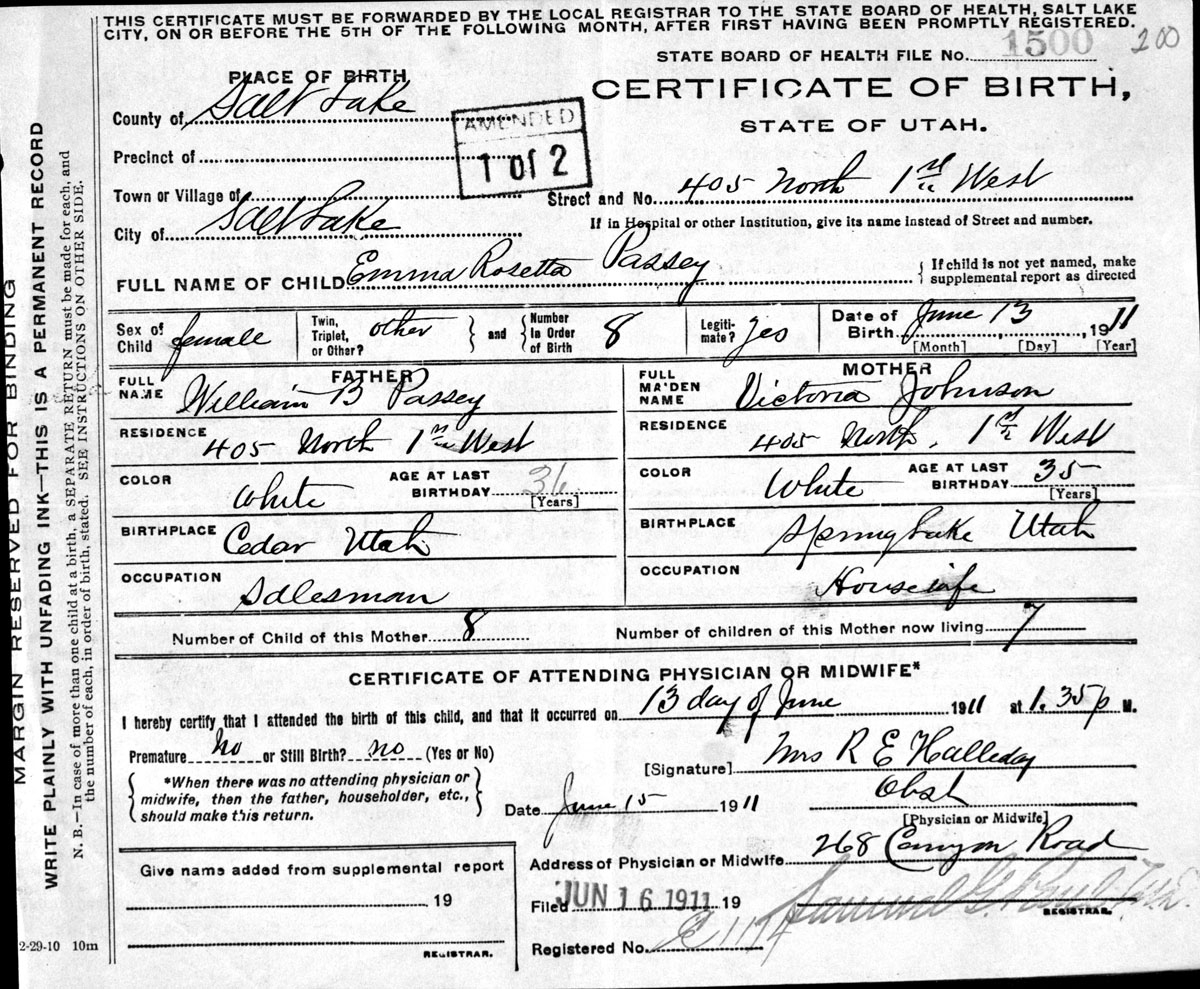 THIS CERTIFICATE MUST BE FORWARDED BY THE LOCAL REGISTRAR TO THE STATE BOARD OF HEALTH, SALT LAKE
CITY, ON OR BEFORE THE 5TH OF THE FOLLOWING MONTH, AFTER FIRST HAVING BEEN PROMPTLY REGISTERED.
STATE BOARD OF HEALTH FILE No. 1500 200
PLACE OF BIRTH
CERTIFICATE OF BIRTH,
STATE OF UTAH.
County of Salt Lake
AMENDED
1 of 2
Precinct of
Town or Village of
Street and No. 405 North 1st West
City of Salt Lake
If in Hospital or other Institution, give its name instead of Street and number.
FULL NAME OF CHILD Emma Rosetta Passey { If child is not yet named, make
supplemental report as directed
Sex of Child female Twin, Triplet, or Other? other } and { Number In Order of Birth 8 Legiti-mate? yes Date of Birth June 13, 1911
[Month] [Day] [Year]
FATHER
MOTHER
FULL NAME William B Passey
FULL MAIDEN NAME Victoria Johnson
RESIDENCE 405 North 1st West
RESIDENCE 405 North, 1st West
COLOR White AGE AT LAST BIRTHDAY 36 [Years]
COLOR White AGE AT LAST BIRTHDAY 35 [Years]
BIRTHPLACE Cedar Utah
BIRTHPLACE Spring Lake Utah
OCCUPATION Salesman
OCCUPATION Housewife
Number of Child of this Mother 8
Number of children of this Mother now living 7
CERTIFICATE OF ATTENDING PHYSICIAN OR MIDWIFE*
I hereby certify that I attended the birth of this child, and that it occurred on 13 day of June 1911 at 1.35 p M.
Premature no or Still Birth? no (Yes or No)
[Signature] Mrs R E Halleday
{ *When there was no attending physician or
midwife, then the father, householder, etc.,
should make this return. }
Date June 15 1911
Obst
[Physician or Midwife]
Address of Physician or Midwife 268 Canyon Road
Filed JUN 16 1911 19
REGISTRAR.
Registered No.
Give name added from supplemental report
19
REGISTRAR.
2-29-10 10m
MARGIN RESERVED FOR BINDING
WRITE PLAINLY WITH UNFADING INK—THIS IS A PERMANENT RECORD
N. B.—In case of more than one child at a birth, a SEPARATE RETURN must be made for each, and
the number of each, in order of birth, stated. SEE INSTRUCTIONS ON OTHER SIDE.